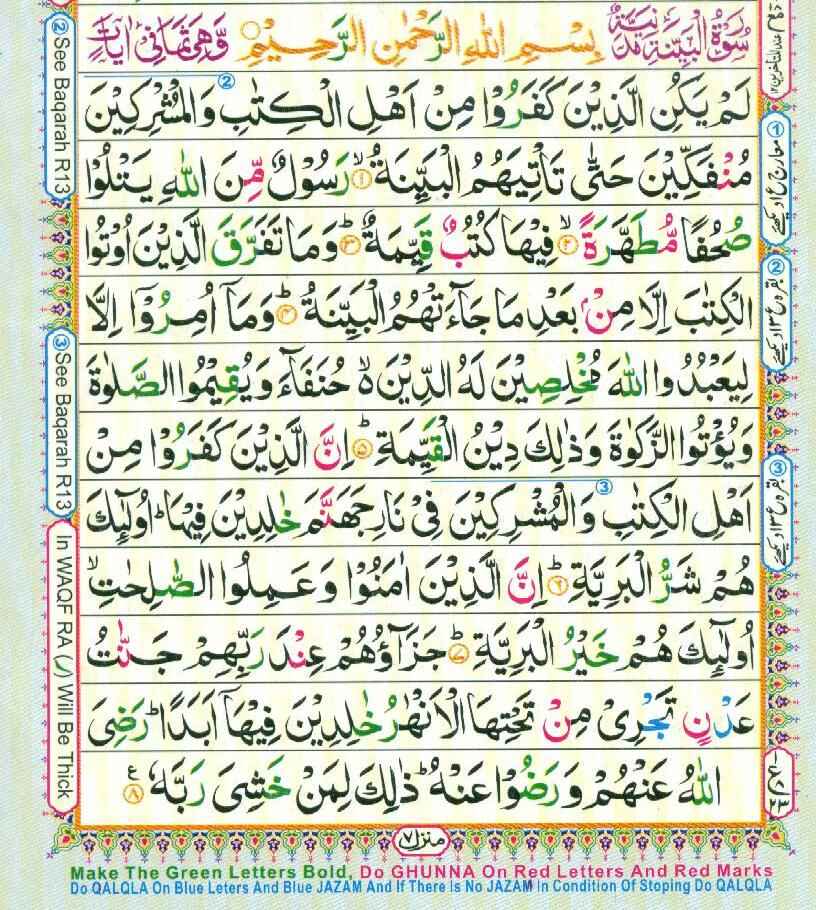 سُوْرَةُ الْبَيِّنَةِ مَدَنِيَّةٌ بِسْمِ اللهِ الرَّحْمٰنِ الرَّحِيْمِ وَّهِىَ ثَمَانِىْ اٰيَاتٍ
لَمْ يَكُنِ الَّذِيْنَ كَفَرُوْا مِنْ اَهْلِ الْكِتٰبِ وَالْمُشْرِكِيْنَ ②
مُنْفَكِّيْنَ حَتّٰى تَاْتِيَهُمُ الْبَيِّنَةُ ۙ‏﴿۱﴾ رَسُوْلٌ مِّنَ اللهِ يَتْلُوْا
صُحُفًا مُّطَهَّرَةً ۙ‏﴿۲﴾ فِيْهَا كُتُبٌ قَيِّمَةٌ ؕ‏﴿۳﴾ وَمَا تَفَرَّقَ الَّذِيْنَ اُوْتُوا
الْكِتٰبَ اِلَّا مِنْۢ بَعْدِ مَا جَآءَتْهُمُ الْبَيِّنَةُ ؕ‏﴿۴﴾ وَمَاۤ اُمِرُوْۤا اِلَّا
لِيَعْبُدُوا اللهَ مُخْلِصِيْنَ لَهُ الدِّيْنَ ۙ۬ حُنَفَآءَ وَيُقِيْمُوا الصَّلٰوةَ
وَيُؤْتُوا الزَّكٰوةَ وَذٰلِكَ دِيْنُ الْقَيِّمَةِ ؕ‏﴿۵﴾ اِنَّ الَّذِيْنَ كَفَرُوْا مِنْ
اَهْلِ الْكِتٰبِ وَالْمُشْرِكِيْنَ ③ فِىْ نَارِ جَهَنَّمَ خٰلِدِيْنَ فِيْهَا ؕ اُولٰٓئِكَ
هُمْ شَرُّ الْبَرِيَّةِ ؕ‏﴿۶﴾ اِنَّ الَّذِيْنَ اٰمَنُوْا وَعَمِلُوا الصّٰلِحٰتِ ۙ
اُولٰٓئِكَ هُمْ خَيْرُ الْبَرِيَّةِ ؕ‏﴿۷﴾ جَزَآؤُهُمْ عِنْدَ رَبِّهِمْ جَنّٰتُ
عَدْنٍ تَجْرِىْ مِنْ تَحْتِهَا الْاَنْهٰرُ خٰلِدِيْنَ فِيْهَاۤ اَبَدًا ؕ رَضِىَ
اللهُ عَنْهُمْ وَرَضُوْا عَنْهُ ؕ ذٰلِكَ لِمَنْ خَشِىَ رَبَّهٗ ﴿۸﴾ ع
② See Baqarah R13
③ See Baqarah R13
In WAQF RA (ر) Will Be Thick
منزل ۷
Make The Green Letters Bold, Do GHUNNA On Red Letters And Red Marks
Do QALQLA On Blue Leters And Blue JAZAM And If There Is No JAZAM In Condition Of Stoping Do QALQLA